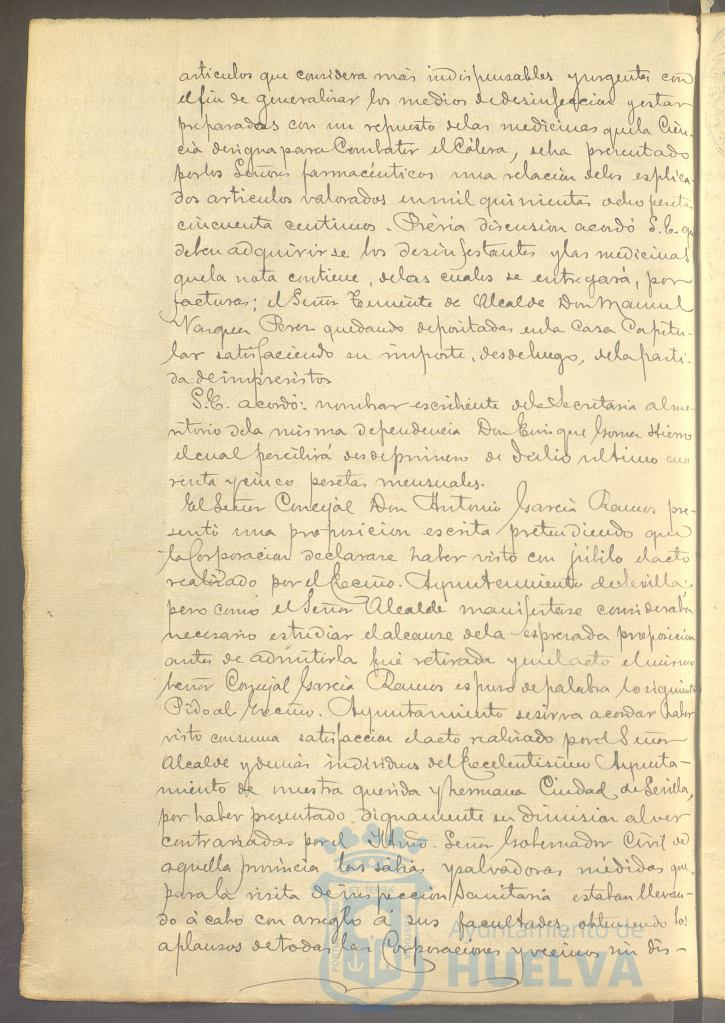 articulos que considera más indispensables y urgentes con
el fin de generalizar los medios de desinfeccion y estar
preparados con un repuesto de las medicinas que la Cien-
cia designa para Combatir el Cólera, se ha presentado
por los Señores farmacéuticos una relacion de los esplica-
dos articulos valorados en mil quinientas ocho pesetas
cincuenta centimos. Prévia discusion acordó S.E. que
deben adquirirse los desinfestantes y las medicinas
que la nota contiene, de las cuales se entregará, por
facturas; el Señor Teniente de Alcalde Don Manuel
Vazquez Perez quedando depositadas en la Casa Capitu-
lar satisfaciendo su importe, desde luego, de la parti-
da de imprevistos
S.E. acordó: nombrar escribiente de la Secretaria al me-
ritorio de la misma dependencia Don Enrique Gomez Hierro
el cual percibirá desde primero de Julio ultimo cua
renta y cinco pesetas mensuales.
El Señor Concejal Don Antonio Garcia Ramos pre-
sentó una proposicion escrita pretendiendo que
la Corporacion declarase haber visto con júbilo el acto
realizado por el Excmo. Ayuntamiento de Sevilla;
pero como el Señor Alcalde manifestase consideraba
necesario estudiar el alcance de la espresada proposicion
antes de admitirla fué retirada y en el acto el mismo
Señor Concejal Garcia Ramos espuso de palabra lo siguiente
Pido al Excmo. Ayuntamiento se sirva acordar haber
visto con suma satisfaccion el acto realizado por el Señor
Alcalde y demás individuos del Excelentisimo Ayunta-
miento de nuestra querida y hermana Ciudad de Sevilla,
por haber presentado dignamente su dimision al ver
contrariadas por el Iltmo. Señor Gobernador Civil de
aquella provincia las sabias y salvadoras médidas que
para la visita de inspeccion Sanitaria estaban llevan-
do á cabo con arreglo á sus facultades, obteniendo los
aplausos de todas las Corporaciones y vecinos sin dis-
Ayuntamiento de
HUELVA